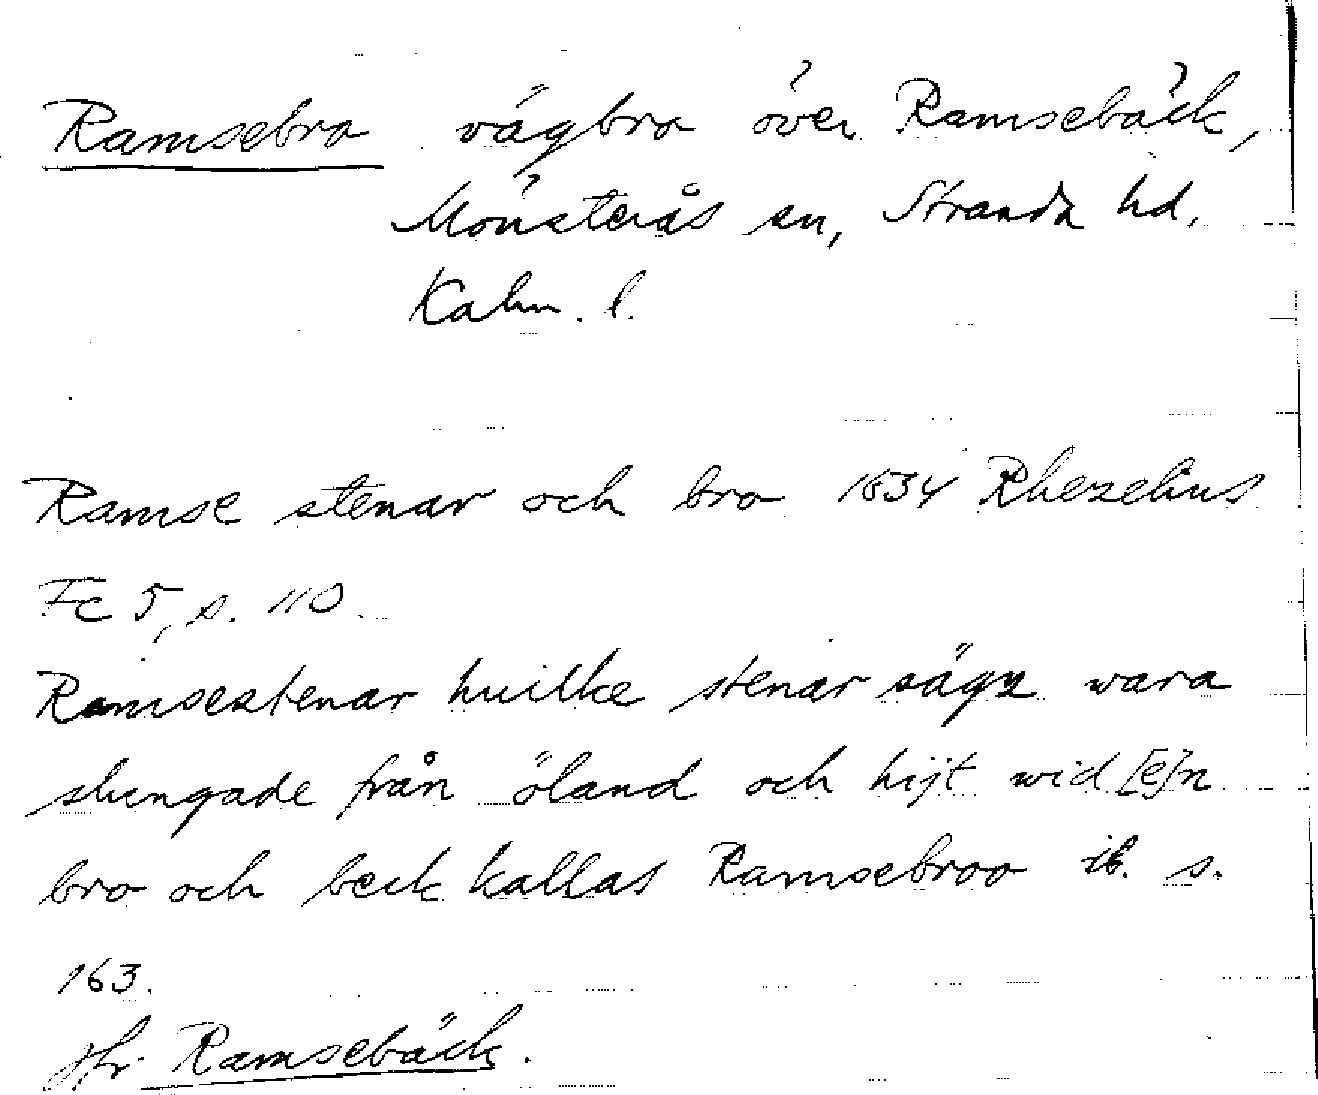 Ramsebro vägbro över Ramsebäck,
Mönsterås sn, Stranda hd,
Kalm. l.
Ramse stenar och bro 1634 Rhezelius
Fc 5, s. 110.
Ramsestenar huilke stenar säga wara
slungade från öland och hijt wid [e]n
bro och beck kallas Ramsebroo ib. s.
163.
Jfr Ramsebäck.